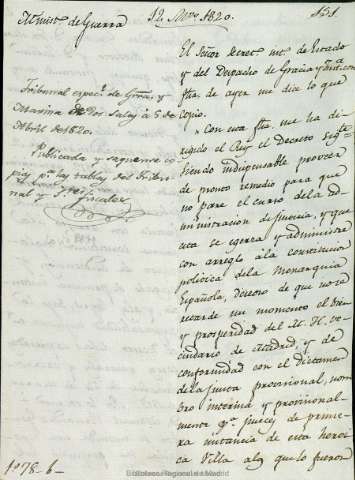 Minist.º de Guerra
12 Mzo 1820.
151
Tribunal espec.l de Gra. y
Marina Dos Salas à 5 de
Abril de 1820.
Publicada y saquense co
pias p.ª las tablas del Tribu
nal y S.res Fiscales
El Señor Secret. int.º de Estado
y del Despacho de Gracia y Just.ª con
fha. de ayer me dice lo que
copio.
" Con esta fha. me ha di-
rigido el Rey el Decreto sig.te
Siendo indispensable proveer
de pronto remedio para que
no pare el curso de la ad-
ministracion de Justicia, y que
esta se egerza y administre
con arreglo à la constitucion
politica de la Monarquia
Española, deseoso de que no se
retarde un momento el bien
y prosperidad del M. H. ve-
cindario de Madrid, y de
conformidad con el dictamen
de la Junta provisional, nom-
bro interina y provisional-
mente p.r Jueces de prime-
ra instancia de esta heroi-
ca Villa alos que lo fueron
1078-6-
Biblioteca Regional de Madrid